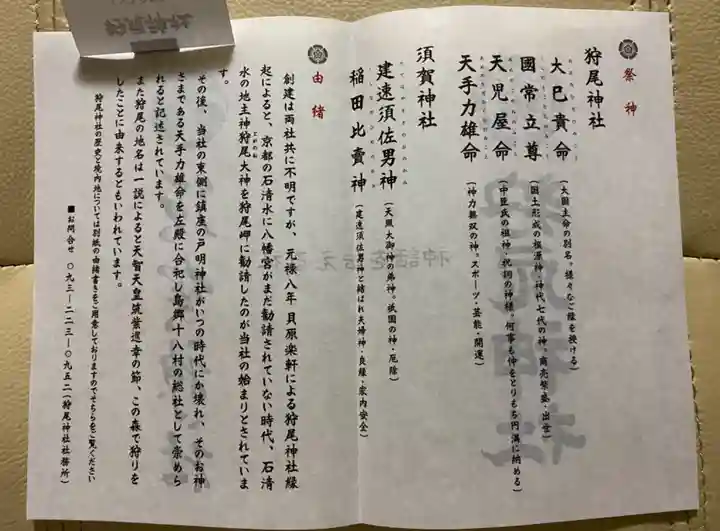 祭神
狩尾神社
大巳貴命(大国主命の別名。様々なご縁を授ける)
國常立尊(国土形成の根源神・神代七代の神、商売繁盛・出世)
天児屋命(中臣氏の祖神・祝詞の神様。何事も仲をとりもち円満に納める)
天手力雄命(神力無双の神。スポーツ・芸能・開運)
須賀神社
建速須佐男神(天照大御神の弟神。祇園の神・厄除)
稲田比賣神(建速須佐男神と結ばれ夫婦神・良縁・家内安全)
由緒
創建は両社共に不明ですが、元禄八年 貝原楽軒による狩尾神社縁
起によると、京都の石清水に八幡宮がまだ勧請されていない時代、石清
水の地主神狩尾大神を狩尾岬に勧請したのが当社の始まりとされていま
す。
その後、当社の東側に鎮座の戸明神社がいつの時代にか壊れ、そのお神
さまである天手力雄命を左殿に合祀し島郷十八村の総社として崇めら
れると記述されています。
また狩尾の地名は一説によると天智天皇筑紫巡幸の節、この森で狩りを
したことに由来するともいわれています。
狩尾神社の歴史と境内地については別紙の由緒書きをご用意しておりますのでそちらをご覧ください
■お問合せ 〇九三ー二二三ー〇九五二(狩尾神社社務所)